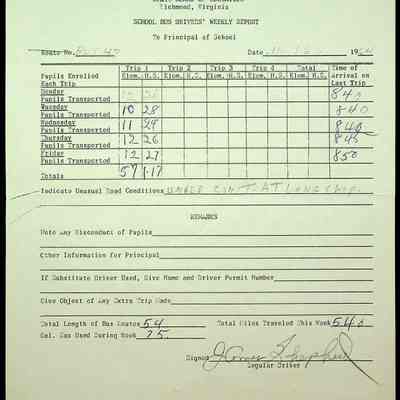 Richmond, Virginia
SCHOOL BUS DRIVERS' WEEKLY REPORT
To Principal of School
Route No. Date 19
Trip 1 Trip 2 Trip 3 Trip 4 Total Time of
Pupils Enrolled Elem. H.S. Elem. H.S. Elem. H.S. Elem. H.S. Elem. H.S. Arrival on
Each Trip Last Trip
Monday
Pupils Transported 12 840
Tuesday
Pupils Transported 10 28 840
Wednesday
Pupils Transported 11 29 840
Thursday
Pupils Transported 12 26 845
Friday
Pupils Transported 12 27 850
Totals 57
Indicate Unusual Road Conditions UNDER CONT. AT LONG SHOP.
REMARKS
Note Any Misconduct of Pupils
Other Information for Principal
If Substitute Driver Used, Give Name and Driver Permit Number
Give Object of Any Extra Trip Made
Total Length of Bus Routes 54 Total Miles Traveled This Week 540
Gal. Gas Used During Week 75
Signed Shepherd
Regular Driver